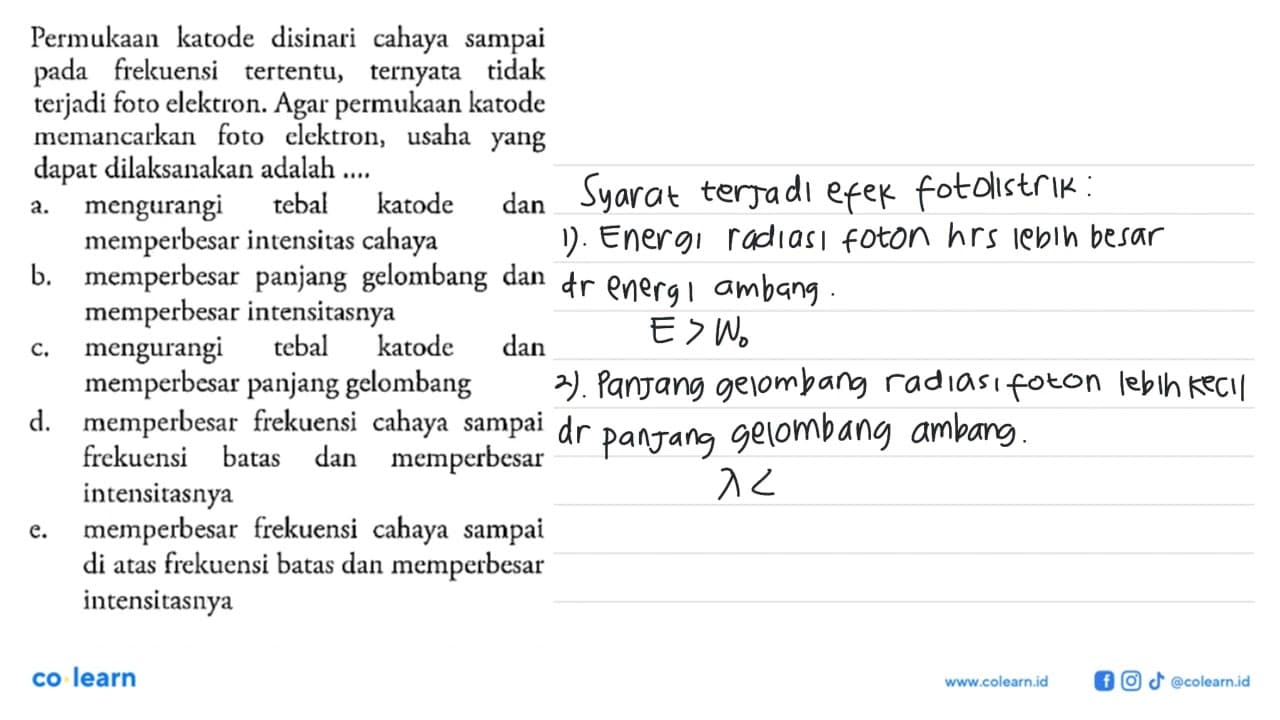 Permukaan katode disinari cahaya sampai
pada frekuensi tertentu, ternyata tidak
terjadi foto elektron. Agar permukaan katode
memancarkan foto elektron, usaha yang
dapat dilaksanakan adalah ....
a. mengurangi tebal katode dan
memperbesar intensitas cahaya
b. memperbesar panjang gelombang dan
memperbesar intensitasnya
c. mengurangi tebal katode dan
memperbesar panjang gelombang
d. memperbesar frekuensi cahaya sampai
frekuensi batas dan memperbesar
intensitasnya
e. memperbesar frekuensi cahaya sampai
di atas frekuensi batas dan memperbesar
intensitasnya
Syarat terjadi efek fotolistrik :
1). Energi radiasi foton hrs lebih besar
dr energi ambang .
E > W₀
2). Panjang gelombang radiasi foton lebih kecil
dr panjang gelombang ambang.
λ <
co learn
www.colearn.id
@colearn.id